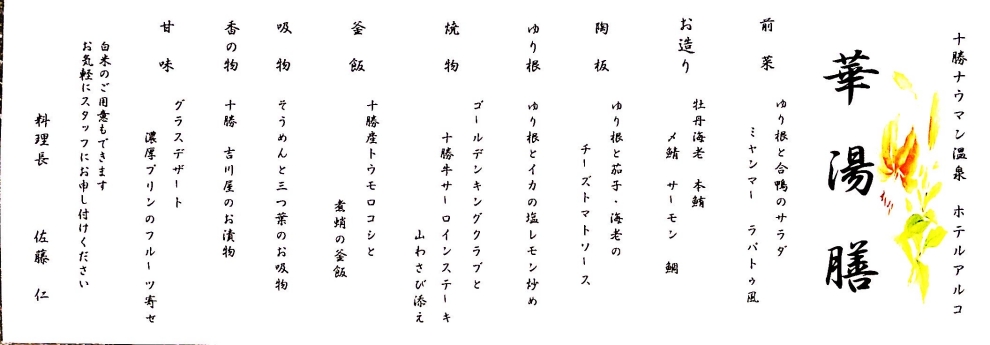 十勝ナウマン温泉　ホテルアルコ
華湯膳
前菜
ゆり根と合鴨のサラダ
ミャンマー　ラパトゥ風
お造り
牡丹海老　本鮪
〆鯖　サーモン　鯛
陶板
ゆり根と茄子・海老の
チーズトマトソース
ゆり根
ゆり根とイカの塩レモン炒め
焼物
ゴールデンキングクラブと
十勝牛サーロインステーキ
山わさび添え
釜飯
十勝産トウモロコシと
煮蛸の釜飯
吸物
そうめんと三つ葉のお吸物
香の物
十勝　吉川屋のお漬物
甘味
グラスデザート
濃厚プリンのフルーツ寄せ
白米のご用意もできます
お気軽にスタッフにお申し付けください
料理長　佐藤　仁